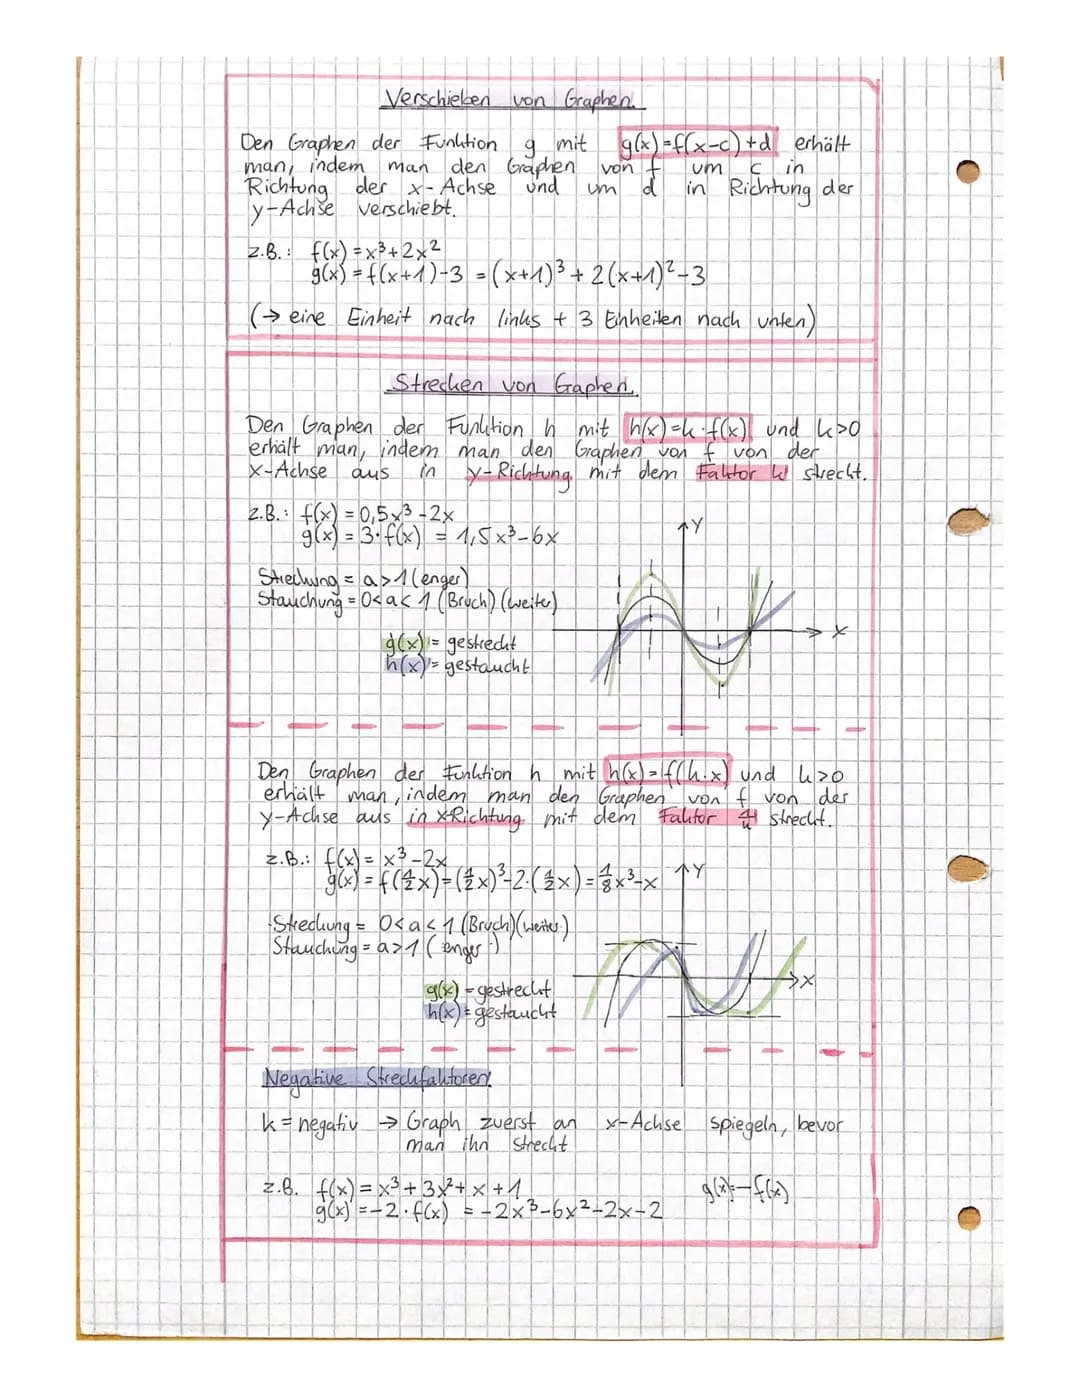 Verschieben von Graphen.
Den Graphen der Funktion g mit g(x)=f(x-c)+d erhält
man, indem man den Graphen von f um c in
Richtung der x-Achse und um d in Richtung der
y-Achse verschiebt.
z.B.: f(x)=x³+2x²
g(x)=f(x+1)-3 =(x+1)³+2(x+1)²-3
(→ eine Einheit nach links + 3 Einheiten nach unten)
Strecken von Gaphen.
Den Graphen der Funktion h mit h(x)=k·f(x) und k>0
erhält man, indem man den Graphen von f von der
x-Achse aus in y-Richtung mit dem Faktor k streckt.
z.B.: f(x)=0,5x³-2x
g(x)=3·f(x) = 1,5x³-6x
Streckung = a>1 (enger)
Stauchung = 0<a<1 (Bruch) (weiter)
g(x) = gestreckt
h(x) = gestaucht
y
x
Den Graphen der Funktion h mit h(x)=f(k·x) und k>0
erhält man, indem man den Graphen von f von der
y-Achse aus in x-Richtung mit dem Faktor 1/k streckt.
z.B.: f(x)=x³-2x
g(x)=f(½x)=(½x)³-2·(½x)=⅛x³-x
Streckung = 0<a<1 (Bruch)(weiter)
Stauchung = a>1 (enger)
g(x) = gestreckt
h(x) = gestaucht
y
x
Negative Streckfaktoren
k = negativ → Graph zuerst an x-Achse spiegeln, bevor
man ihn streckt
z.B. f(x)=x³+3x²+x+1
g(x)=-2·f(x) = -2x³-6x²-2x-2
g(x)=-f(x)